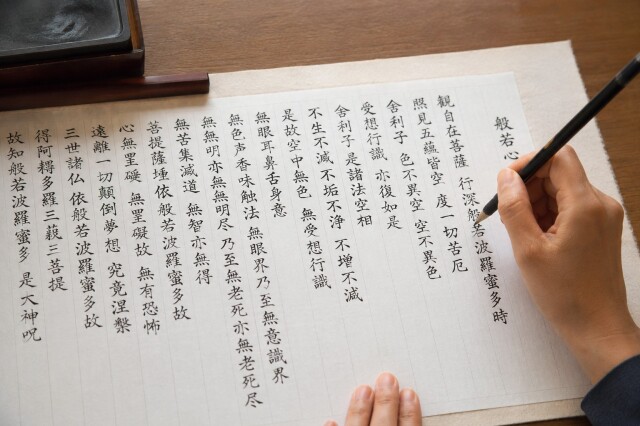 般若心
観自在菩薩 行深般若波羅蜜多時
照見五蘊皆空 度一切苦厄
舍利子 色不異空 空不異色
受想行識 亦復如是
舍利子 是諸法空相
不生不滅 不垢不浄 不増不減
是故空中無色 無受想行識
無眼耳鼻舌身意
無色声香味触法 無眼界乃至無意識界
無無明亦無無明尽 乃至無老死亦無老死尽
無苦集滅道 無智亦無得
菩提薩埵依般若波羅蜜多故
心無罣礙 無罣礙故 無有恐怖
遠離一切顛倒夢想 究竟涅槃
三世諸仏依般若波羅蜜多故
得阿耨多羅三藐三菩提
故知般若波羅蜜多 是大神呪